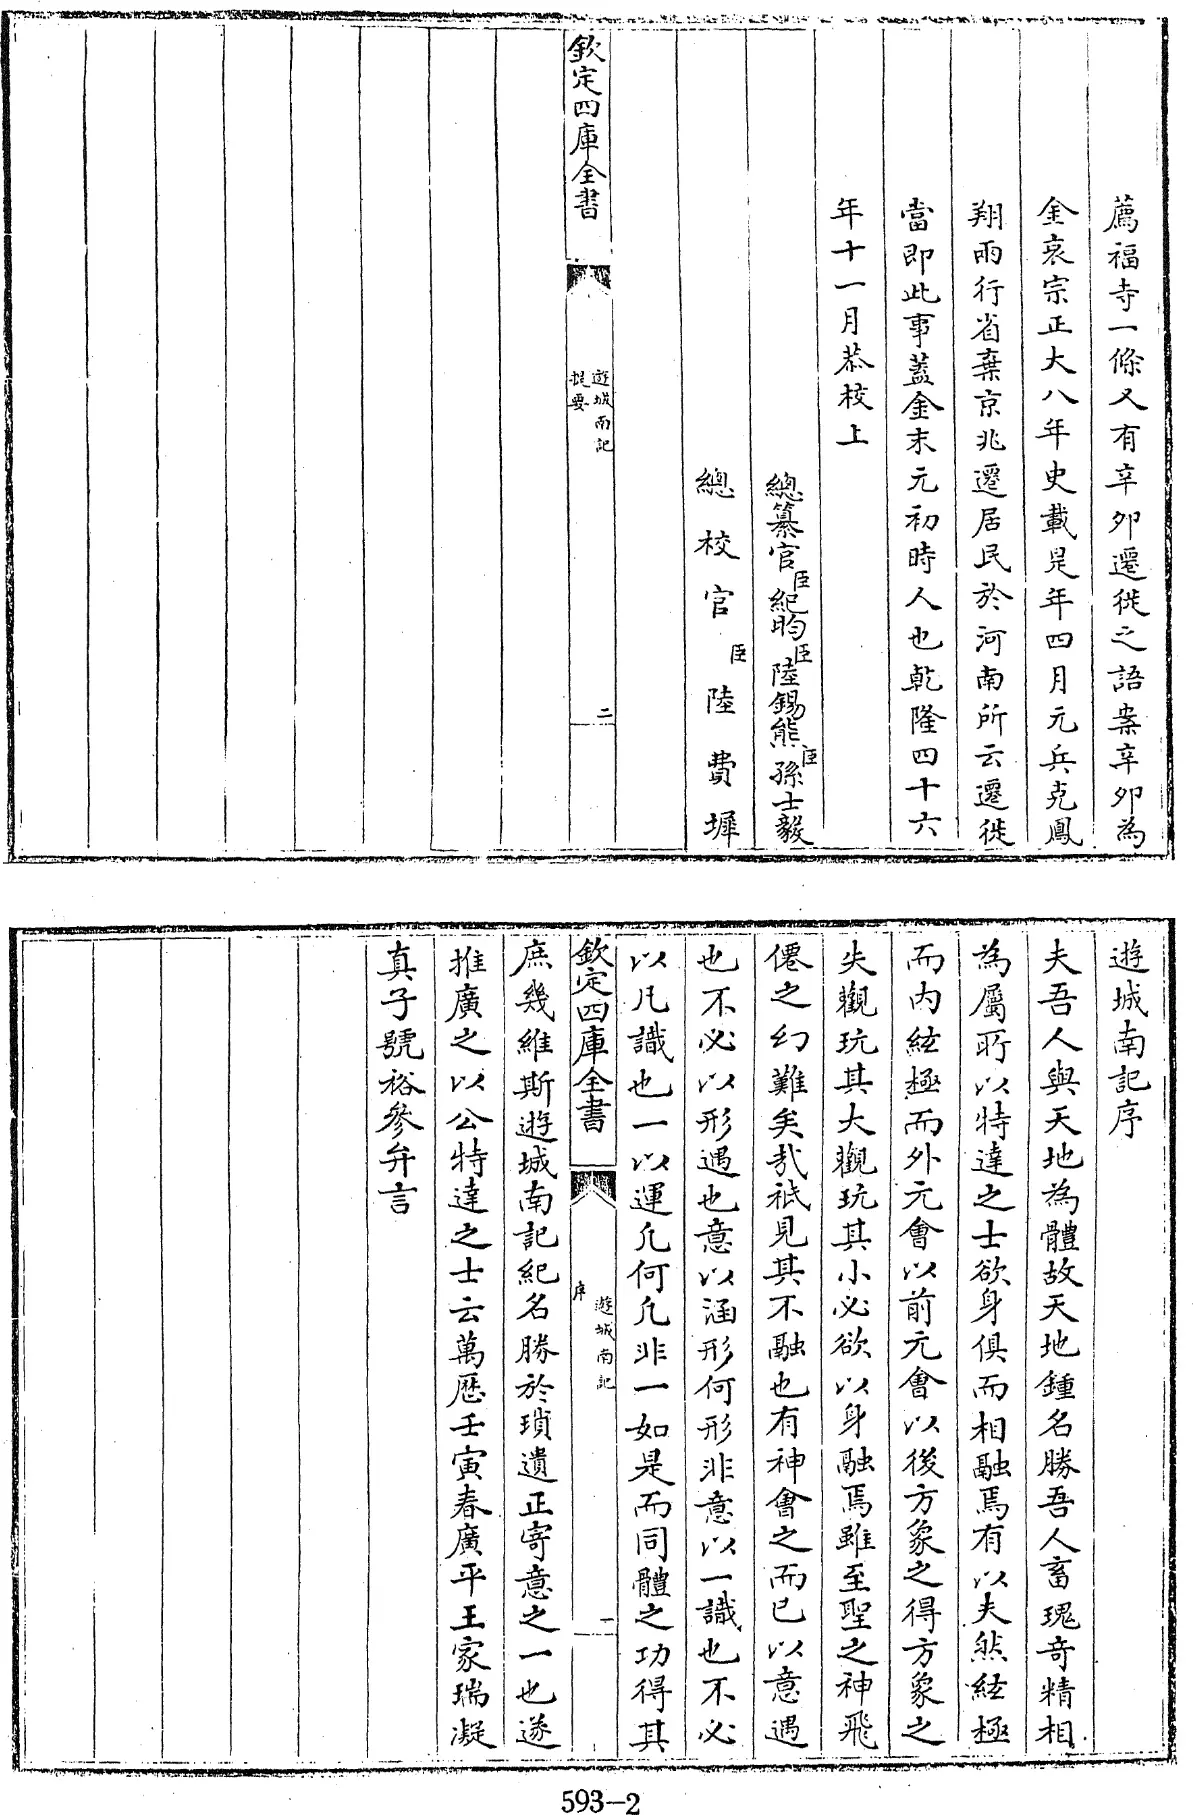 薦福寺一條又有辛卯遷徙之語案辛卯為
金哀宗正大八年史載是年四月元兵克鳳
翔兩行省棄京兆遷居民於河南所云遷徙
當即此事蓋金末元初時人也乾隆四十六
年十一月恭校上
總纂官臣紀昀臣陸錫熊臣孫士毅
總校官臣陸費墀
欽定四庫全書
遊城南記
提要
二
遊城南記序
夫吾人與天地為體故天地鍾名勝吾人畜瑰奇精相
為屬所以特達之士欲身俱而相融焉有以夫然紘極
而内紘極而外元會以前元會以後方象之得方象之
失觀玩其大觀玩其小必欲以身融焉雖至聖之神飛
僊之幻難矣哉祇見其不融也有神會之而已以意遇
也不必以形遇也意以涵形何形非意以一識也不必
以凡識也一以運凢何凢非一如是而同體之功得其
欽定四庫全書
遊城南記
序
一
庶幾維斯遊城南記紀名勝於瑣遺正寄意之一也遂
推廣之以公特達之士云萬歴壬寅春廣平王家瑞凝
真子號裕參弁言
593-2